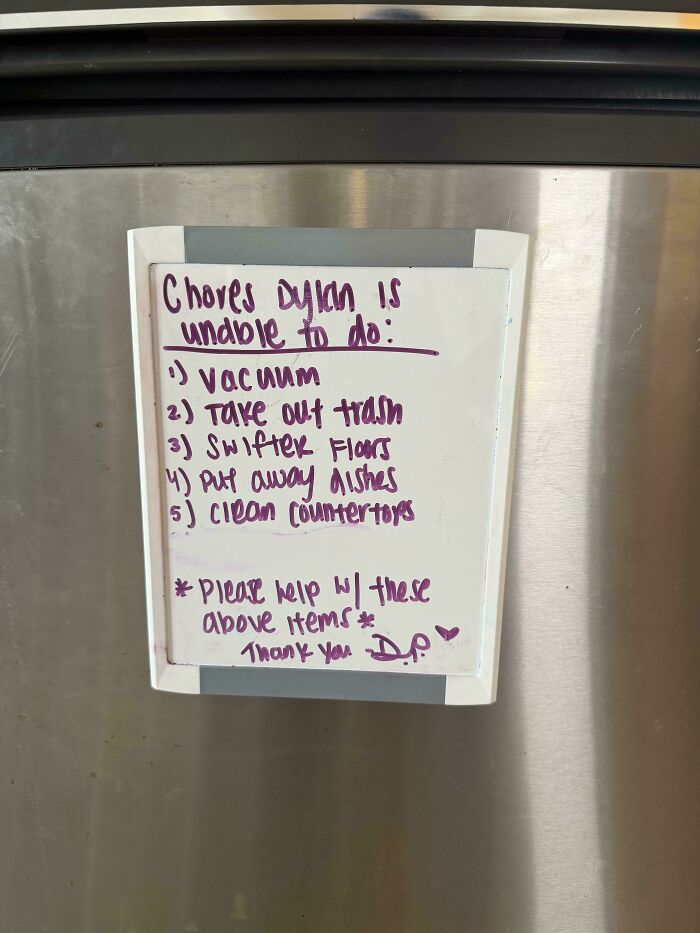 Chores Dylan is
unable to do:
1) Vacuum
2) Take out trash
3) Swifter Floors
4) Put away dishes
5) Clean Countertops
* Please help w/ these
above items *
Thank you -D.P. ♥